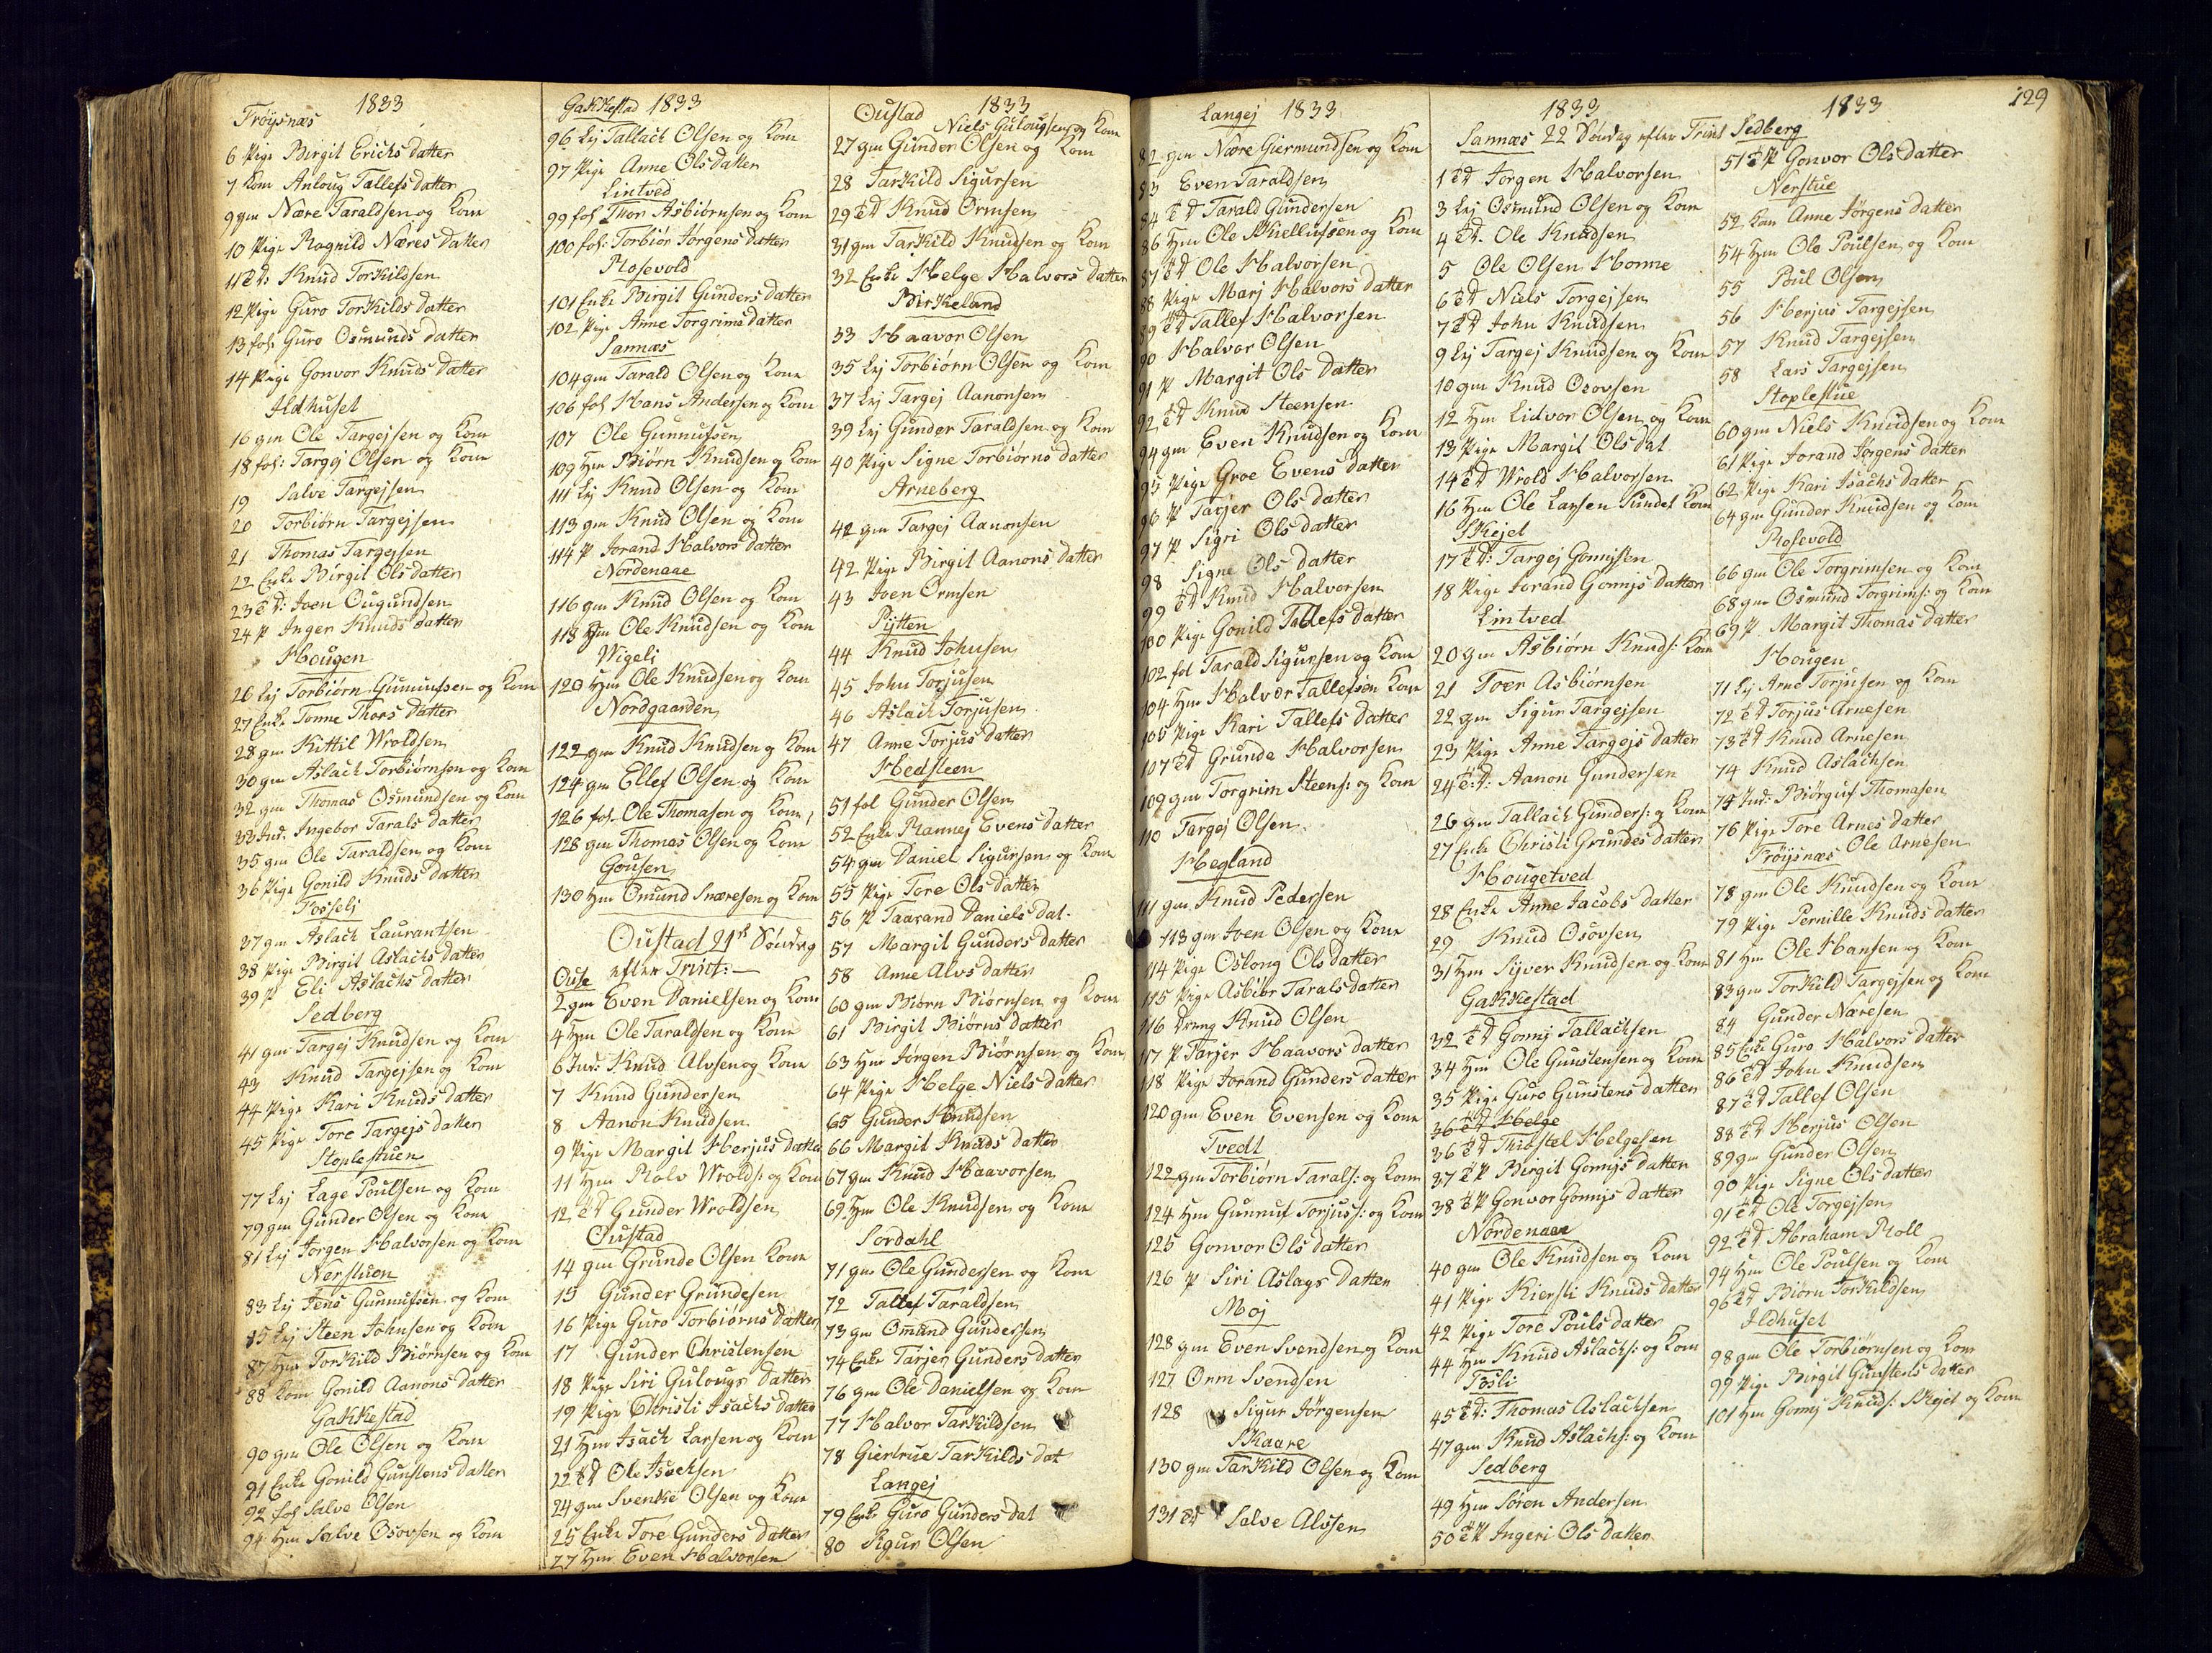 1833
Frøysnæs
6 Pige Birgit Erichs datter
7 Kom Anloug Tallefs datter
9 gm Nære Taraldsen og Kom
10 Pige Ragnild Næres datter
11 Ed: Knud Torkildsen
12 Pige Guro Torkilds datter
13 fol: Guro Osmunds datter
14 Pige Gonvor Knuds datter
Ildhuset
16 gm Ole Targejsen og Kom
18 fol: Targej Olsen og Kom
19 Salve Targejsen
20 Torbiørn Targejsen
21 Thomas Targejsen
22 Enke Birgit Ols datter
23 Ed: Joen Ougundsen
24 P Inger Knuds datter
Hougen
26 Lej Torbiørn Gunnufsen og Kom
27 Enke Tonne Thors datter
28 gm Kittil Wroldsen
30 gm Aslach Torbiørnsen og Kom
32 gm Thomas Osmundsen og Kom
33 Ind. Ingebor Tarals datter
35 gm Ole Taraldsen og Kom
36 Pige Gonild Knuds datter
Fosseli
37 gm Aslach Laurantsen
38 Pige Birgit Aslachs datter
39 P Eli Aslachs datter
Sedberg
41 gm Targej Knudsen og Kom
43 Knud Targejsen og Kom
44 Pige Kari Knuds datter
45 Pige Tore Targejs datter
Stoplestuen
77 Lej Lage Poulsen og Kom
79 gm Gunder Olsen og Kom
81 Lej Jørgen Halvorsen og Kom
Nerstuen
83 Lej Jens Gunnufsen og Kom
85 Lej Steen Johnsen og Kom
87 Hm Torkild Biørnsen og Kom
88 Kom Gonild Aanons datter
Gakkestad
90 gm Ole Olsen og Kom
91 Enke Gonild Gunstens datter
92 fol Salve Olsen
94 Hm Salve Osovsen og Kom
Gakkestad 1833
96 Lej Tallach Olsen og Kom
97 Pige Anne Ols datter
Lintved
99 fol Thor Asbiørnsen og Kom
100 fol: Torbior Jørgens datter
Rosevold
101 Enke Birgit Gunders datter
102 Pige Anne Torgrims datter
Sannæs
104 gm Tarald Olsen og Kom
106 fol Hans Andersen og Kom
107 Ole Gunnufsen
109 Hm Biørn Knudsen og Kom
111 Lej Knud Olsen og Kom
113 gm Knud Olsen og Kom
114 P Jorand Halvors datter
Nordenaae
116 gm Knud Olsen og Kom
118 Hm Ole Knudsen og Kom
Wigeli
120 Hm Ole Knudsen og Kom
Nordgaarden
122 gm Knud Knudsen og Kom
124 gm Ellef Olsen og Kom
126 fol. Ole Thomasen og Kom
128 gm Thomas Olsen og Kom
Gousen
130 Hm Omund Snæresen og Kom
Oustad 21de Søndag
efter Trinit:
Ouse
2 gm Even Danielsen og Kom
4 Hm Ole Taraldsen og Kom
6 Ind: Knud Alvsen og Kom
7 Knud Gundersen
8 Aanon Knudsen
9 Pige Margit Herjus datter
11 Hm Rolv Wrolds: og Kom
12 Ed Gunder Wroldsen
Oustad
14 gm Grunde Olsen Kom
15 Gunder Grundesen
16 Pige Guro Torbiørns datter
17 Gunder Christensen
18 Pige Siri Gulougs datter
19 Pige Christi Isachs datter
21 Hm Isach Larsen og Kom
22 Ed Ole Isachsen
24 gm Svenke Olsen og Kom
25 Enke Tore Gunders datter
27 Hm Even Halvorsen
Oustad 1833
Niels Gulougsen og Kom
27 gm Gunder Olsen og Kom
28 Tarkild Sigursen
29 Ed Knud Ormsen
31 gm Tarkild Knudsen og Kom
32 Enke Helge Halvors datter
Birkeland
33 Haavor Olsen
35 Lej Torbiørn Olsen og Kom
37 Lej Targej Aanonsen
39 Lej Gunder Taraldsen og Kom
40 Pige Signe Torbiørns datter
Arneberg
42 gm Targej Aanonsen
42 Pige Birgit Aanons datter
43 Joen Ormsen
Pytten
44 Knud Johnsen
45 John Torjusen
46 Aslach Torjusen
47 Anne Torjus datter
Hedsteen
51 fol Gunder Olsen
52 Enke Rannej Evens datter
54 gm Daniel Sigursen og Kom
55 Pige Tore Ols datter
56 P Taarand Daniels dat.
57 Margit Gunders datter
58 Anne Alvs datter
60 gm Biørn Biørnsen og Kom
61 Birgit Biørns datter
63 Hm Jørgen Biørnsen og Kom
64 Pige Helge Niels datter
65 Gunder Knudsen
66 Margit Knuds datter
67 gm Knud Haavorsen
69 Hm Ole Knudsen og Kom
Sordahl
71 gm Ole Gundersen og Kom
72 Tallef Taraldsen
73 gm Omund Gundersen
74 Enke Tarjer Gunders datter
76 gm Ole Danielsen og Kom
77 Halvor Tarkildsen
78 Giertrue Tarkilds dat
Langej
79 Enke Guro Gunders dat
80 Sigur Olsen
Langej 1833
82 gm Nære Giermundsen og Kom
83 Even Taraldsen
84 Ed Tarald Gundersen
86 Hm Ole Kiellufsen og Kom
87 Ed Ole Halvorsen
88 Pige Marj Halvors datter
89 Ed Tallef Halvorsen
90 Halvor Olsen
91 P Margit Ols datter
92 Ed Knud Steensen
94 gm Even Knudsen og Kom
95 Pige Groe Evens datter
96 P Tarjer Ols datter
97 P Sigri Ols datter
98 Signe Ols datter
99 Ed Knud Halvorsen
100 Pige Gonild Tallefs datter
102 fol Tarald Sigursen og Kom
104 Hm Halvor Tallefsen Kom
105 Pige Kari Tallefs datter
107 Ed Grunde Halvorsen
109 gm Torgrim Steens: og Kom
110 Targej Olsen
Hegland
111 gm Knud Pedersen
113 gm Joen Olsen og Kom
114 Pige Oslong Ols datter
115 Pige Asbior Tarals datter
116 Dreng Knud Olsen
117 P Tarjer Haavors datter
118 Pige Jorand Gunders datter
120 gm Even Evensen og Kom
Tvedt
122 gm Torbiørn Tarals: og Kom
124 Hm Gunnuf Torjus: og Kom
125 Gonvor Ols datter
126 P Siri Aslags datter
Moj
128 gm Even Svendsen og Kom
127 Orm Svendsen
128 Sigur Jørgensen
Skaare
130 gm Tarkild Olsen og Kom
131 Ed Salve Alvsen
1833
Sannæs 22 Søndag efter Trint
1 Ed Jorgen Halvorsen
3 Lej Osmund Olsen og Kom
4 Ed. Ole Knudsen
5 Ole Olsen Homme
6 Ed Niels Torgejsen
7 Ed John Knudsen
9 Lej Targej Knudsen og Kom
10 gm Knud Osovsen
12 Hm Eidvor Olsen og Kom
13 Pige Margit Ols dat
14 Ed Wrold Halvorsen
16 Hm Ole Larsen Sundet Kom
Skejet
17 Ed: Targej Gonnysen
18 Pige Jorand Gonnjs datter
Lintved
20 gm Asbiørn Knuds: Kom
21 Toer Asbiørnsen
22 gm Sigur Targejsen
23 Pige Anne Targejs datter
24 Ed: Aanon Gundersen
26 gm Tallach Gunders: og Kom
27 Enke Christi Grundes datter
Hougetved
28 Enke Anne Jacobs datter
29 Knud Osovsen
31 Hm Syver Knudsen og Kom
Gakkestad
32 Ed Gonnj Tallachsen
34 Hm Ole Gunstensen og Kom
35 Pige Guro Gunstens datter
36 Ed Helge
36 Ed Thiostel Helgesen
37 EP Birgit Gonnjs datter
38 EP Gonvor Gonnjs datter
Nordenaae
40 gm Ole Knudsen og Kom
41 Pige Kiersti Knuds datter
42 Pige Tore Pouls datter
44 Hm Knud Aslachs: og Kom
Fosli
45 Ed: Thomas Aslachsen
47 gm Knud Aslachs: og Kom
Sedberg
49 Hm Søren Andersen
50 EP Ingeri Ols datter
1833 129
Sedberg
51 EP Gonvor Ols datter
Nerstue
52 Kom Anne Jørgens datter
54 Hm Ole Poulsen og Kom
55 Poul Olsen
56 Herjus Targejsen
57 Knud Targejsen
58 Lars Targejsen
Stoplestue
60 gm Niels Knudsen og Kom
61 Pige Jorand Jørgens datter
62 Pige Kari Isachs datter
64 gm Gunder Knudsen og Kom
Rosevold
66 gm Ole Torgrimsen og Kom
68 gm Osmund Torgrims: og Kom
69 P. Margit Thomas datter
Hougen
71 Lej Arne Torjusen og Kom
72 Ed Torjus Arnesen
73 Ed Knud Arnesen
74 Knud Aslachsen
74 Ind: Biørguf Thomasen
76 Pige Tore Arnes datter
Frøysnæs Ole Arnesen
78 gm Ole Knudsen og Kom
79 Pige Pernille Knuds datter
81 Hm Ole Hansen og Kom
83 gm Torkild Targejsen og Kom
84 Gunder Næresen
85 Enke Guro Halvors datter
86 Ed John Knudsen
87 Ed Tallef Olsen
88 Ed Herjus Olsen
89 gm Gunder Olsen
90 Pige Signe Ols datter
91 Ed Ole Torgejsen
92 Ed Abraham Roll
94 Hm Ole Poulsen og Kom
96 Ed Biørn Torkildsen
Ildhuset
98 gm Ole Torbiørnsen og Kom
99 Pige Birgit Gunstens datter
101 Hm Gonnj Knuds: Skejet og Kom